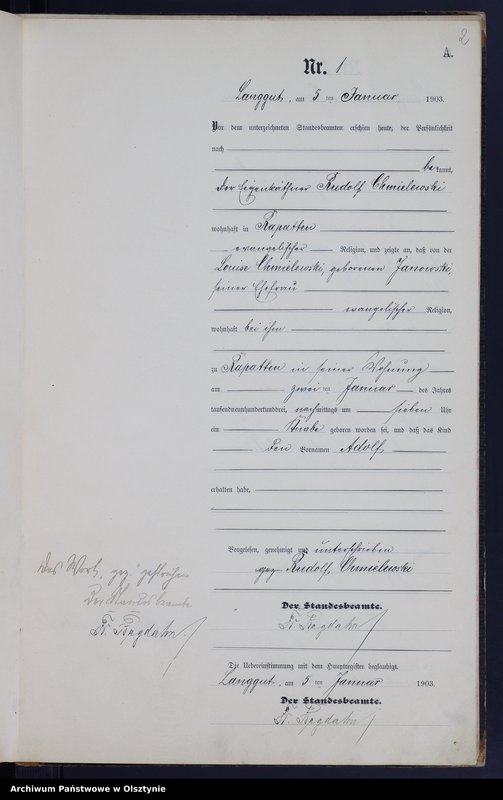 2
A.
Nr. 1
Langgut, am 5 ten Januar 1903.
Vor dem unterzeichneten Standesbeamten erschien heute, der Persönlichkeit
nach
bekannt,
der Eigenkäthner Rudolf Chmielewski
wohnhaft in Rapatten
evangelischer Religion, und zeigte an, daß von der
Louise Chmielewski, geborenen Janowski,
seiner Ehefrau
evangelischer Religion,
wohnhaft bei ihm
zu Rapatten in seiner Wohnung
am zwei ten Januar des Jahres
tausendneunhundertunddrei, nachmittags um sieben Uhr
ein Knabe geboren worden sei, und daß das Kind
den Vornamen Adolf
erhalten habe,
Vorgelesen, genehmigt und unterschrieben
gez. Rudolf Chmielewski
Das Wort "gez" gestrichen
Der Standesbeamte
Der Standesbeamte.
Die Uebereinstimmung mit dem Hauptregister beglaubigt.
Langgut, am 5 ten Januar 1903.
Der Standesbeamte.
Archiwum Państwowe w Olsztynie